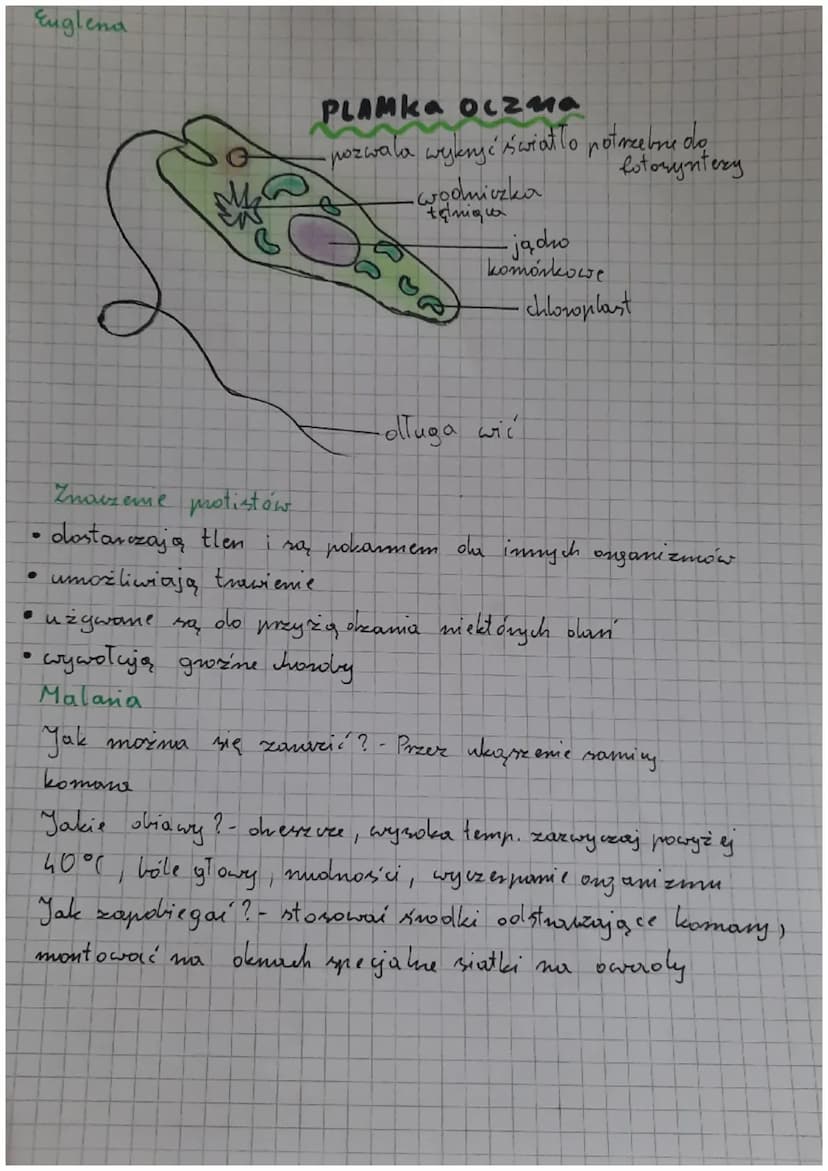 Euglena
PLAMKa OCZNa
pozwala wykryć światło potrzebne do
fotosyntezy
wodniczka
tętniąca
jądro
komórkowe
chloroplast
długa wić
Znaczenie protistów
• dostarczają tlen i są pokarmem dla innych organizmów
• umożliwiają trawienie
• używane są do przyrządzania niektórych dań
• wywołują groźne choroby
Malaria
Jak można się zarazić? - Przez ukąszenie samicy
komara
Jakie obiawy? - dreszcze, wysoka temp. zazwyczaj powyżej
40°C, bóle głowy, nudności, wyczerpanie organizmu
Jak zapobiegać? - stosować środki odstraszające komary,
montować na oknach specjalne siatki na owady